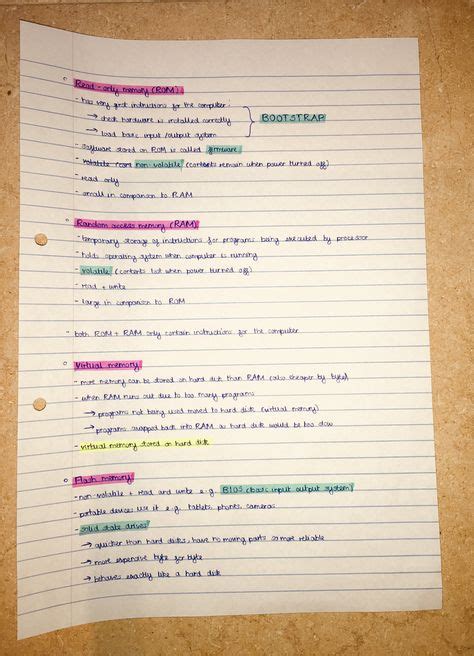 Read - only memory (ROM):
- has very first instructions for the computer:
→ check hardware is installed correctly
→ load basic input/output system
BOOTSTRAP
- software stored on ROM is called firmware
- volatile (con non-volatile (contents remain when power turned off)
- read only
- small in comparison to RAM
Random access memory (RAM)
- temporary storage of instructions for programs being executed by processor
- holds operating system when computer is running
- volatile (contents lost when power turned off)
- read + write
- large in comparison to ROM
- both ROM + RAM only contain instructions for the computer
Virtual memory
- more memory can be stored on hard disk than RAM (also cheaper by byte)
- when RAM runs out due to too many programs
→ programs not being used moved to hard disk (virtual memory)
→ programs swapped back into RAM as hard disk would be too slow
- virtual memory stored on hard disk
Flash memory
- non-volatile + read and write e.g. BIOS (basic input output system)
- portable devices use it e.g. tablets, phones, cameras
- solid state drives
→ quicker than hard disks, have no moving parts so more reliable
→ more expensive byte for byte
→ behaves exactly like a hard disk